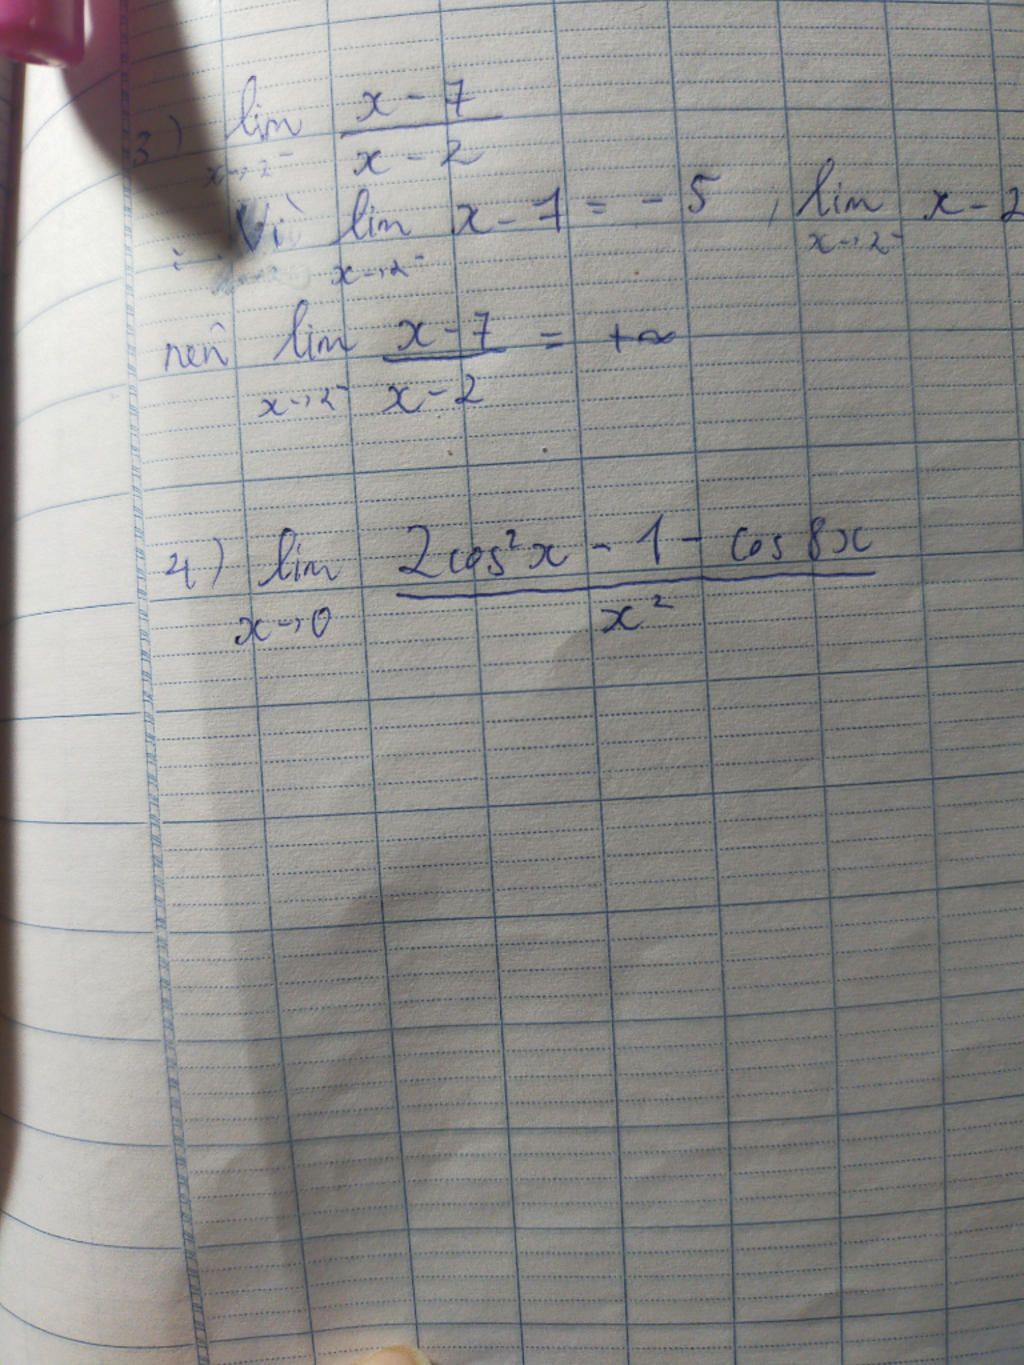 3) lim x→2⁻ (x - 7)/(x - 2)
Vì lim x→2⁻ x - 7 = -5, lim x→2⁻ x - 2
nên lim x→2⁻ (x - 7)/(x - 2) = +∞
4) lim x→0 (2cos²x - 1 - cos 8x)/x²